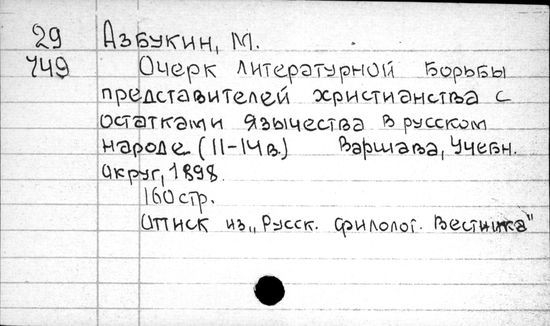 29 Азбукин, М.
749 Очерк литературной борьбы
представителей христианства с
остатками язычества в русском
народе (11-14в.) Варшава, Учебн.
Округ, 1898.
160 стр.
Оттиск из „Русск. филолог. Вестника"